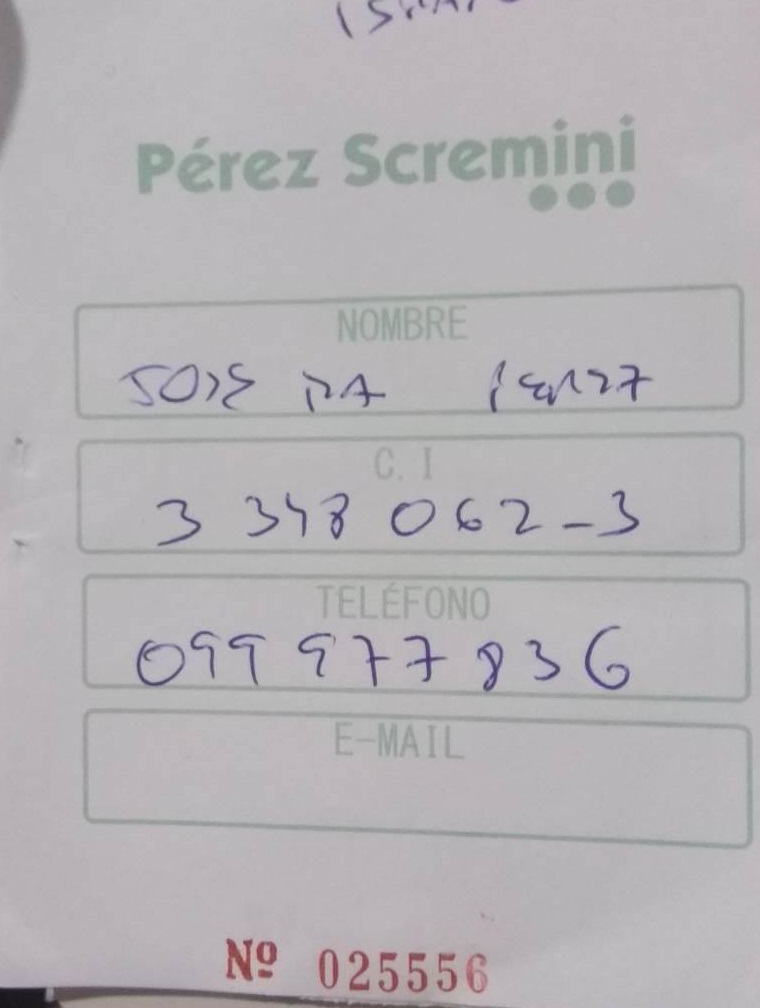 Pérez Scremini
NOMBRE
JOSE
C. I
3 348 062-3
TELÉFONO
099 977 836
E-MAIL
Nº 025556